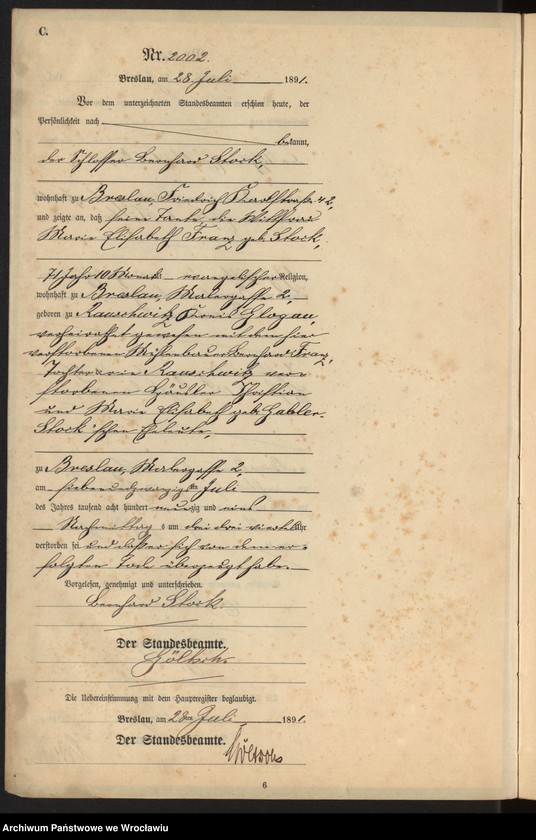 C.
Nr. 2002.
Breslau, am 28. Juli 1891.
Vor dem unterzeichneten Standesbeamten erschien heute, der
Persönlichkeit nach
bekannt,
der Schlosser Bernhard Stock,
wohnhaft zu Breslau, Friedrich Karlstraße 42,
und zeigte an, daß seine Tante, die Wittfrau
Marie Elisabeth Franz geb. Stock,
71 Jahr 10 Monate evangelischer Religion,
wohnhaft zu Breslau, Malergasse 2,
geboren zu Rauschwitz Kreis Glogau,
verheirathet gewesen mit dem hier
verstorbenen Mühlenbauer Bernhard Franz,
Tochter der in Rauschwitz ver-
storbenen Häusler Christian
und Marie Elisabeth geb. Gabler-
Stock'schen Eheleute,
zu Breslau, Malergasse 2,
am siebenundzwanzigsten Juli
des Jahres tausend acht hundert neunzig und eins
Nachmittags um drei drei viertel Uhr
verstorben sei und daß er sich von dem er-
folgten Tode überzeugt habe.
Vorgelesen, genehmigt und unterschrieben.
Bernhard Stock
Der Standesbeamte.
Die Uebereinstimmung mit dem Hauptregister beglaubigt.
Breslau, am 28ten Juli 1891.
Der Standesbeamte.
6
Archiwum Państwowe we Wrocławiu